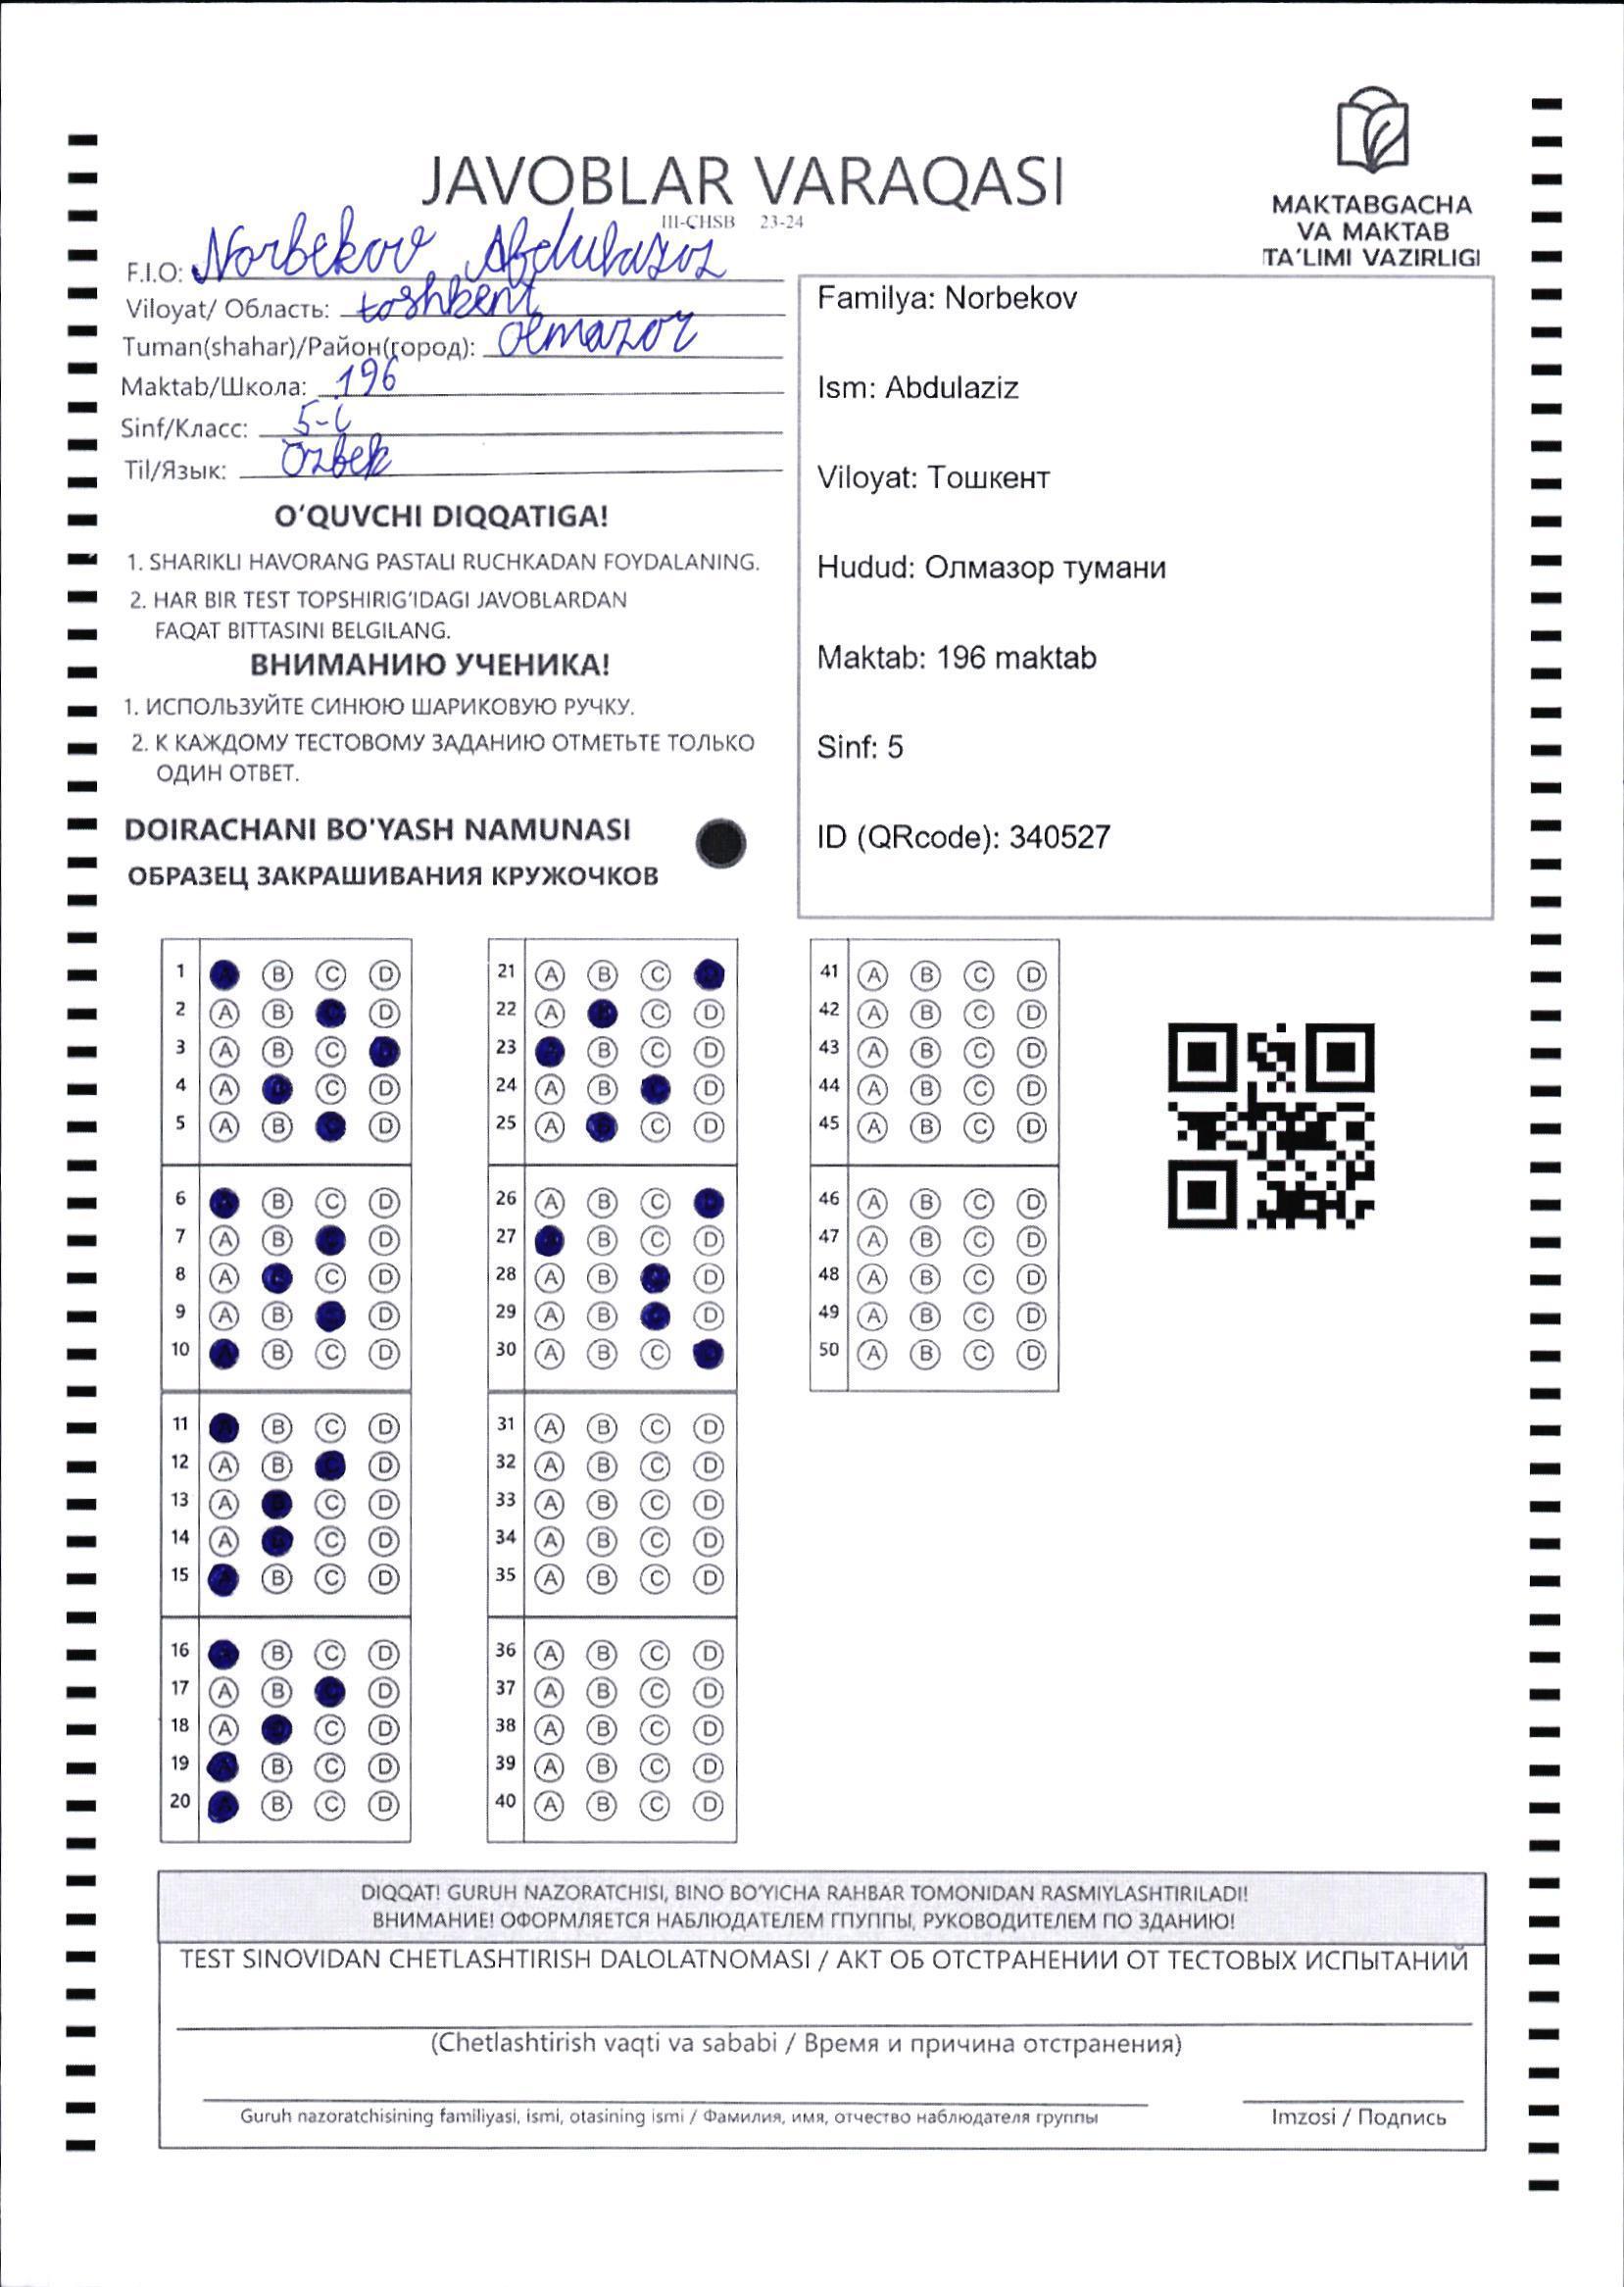 JAVOBLAR VARAQASI
III-CHSB 23-24
MAKTABGACHA
VA MAKTAB
TA'LIMI VAZIRLIGI
F.I.O: Norbekov Abdulaziz
Viloyat/ Область: toshkent
Tuman(shahar)/Район(город): Olmazor
Maktab/Школа: 196
Sinf/Класс: 5-
Til/Язык: Ozbek
O'QUVCHI DIQQATIGA!
1. SHARIKLI HAVORANG PASTALI RUCHKADAN FOYDALANING.
2. HAR BIR TEST TOPSHIRIG'IDAGI JAVOBLARDAN
FAQAT BITTASINI BELGILANG.
ВНИМАНИЮ УЧЕНИКА!
1. ИСПОЛЬЗУЙТЕ СИНЮЮ ШАРИКОВУЮ РУЧКУ.
2. К КАЖДОМУ ТЕСТОВОМУ ЗАДАНИЮ ОТМЕТЬТЕ ТОЛЬКО
ОДИН ОТВЕТ.
DOIRACHANI BO'YASH NAMUNASI
ОБРАЗЕЦ ЗАКРАШИВАНИЯ КРУЖОЧКОВ
Familya: Norbekov
Ism: Abdulaziz
Viloyat: Тошкент
Hudud: Олмазор тумани
Maktab: 196 maktab
Sinf: 5
ID (QRcode): 340527
1 A B C D
2 A B D
3 A B C
4 A C D
5 A B D
6 B C D
7 A B D
8 A C D
9 A B D
10 A B C D
11 A B C D
12 A B C D
13 A C D
14 A C D
15 A B C D
16 B C D
17 A B C D
18 A C D
19 A B C D
20 A B C D
21 A B C
22 A C D
23 B C D
24 A B D
25 A C D
26 A B C
27 B C D
28 A B D
29 A B D
30 A B C
31 A B C D
32 A B C D
33 A B C D
34 A B C D
35 A B C D
36 A B C D
37 A B C D
38 A B C D
39 A B C D
40 A B C D
41 A B C D
42 A B C D
43 A B C D
44 A B C D
45 A B C D
46 A B C D
47 A B C D
48 A B C D
49 A B C D
50 A B C D
DIQQAT! GURUH NAZORATCHISI, BINO BO'YICHA RAHBAR TOMONIDAN RASMIYLASHTIRILADI!
ВНИМАНИЕ! ОФОРМЛЯЕТСЯ НАБЛЮДАТЕЛЕМ ГПУППЫ, РУКОВОДИТЕЛЕМ ПО ЗДАНИЮ!
TEST SINOVIDAN CHETLASHTIRISH DALOLATNOMASI / АКТ ОБ ОТСТРАНЕНИИ ОТ ТЕСТОВЫХ ИСПЫТАНИЙ
(Chetlashtirish vaqti va sababi / Время и причина отстранения)
Guruh nazoratchisining familiyasi, ismi, otasining ismi / Фамилия, имя, отчество наблюдателя группы
Imzosi / Подпись